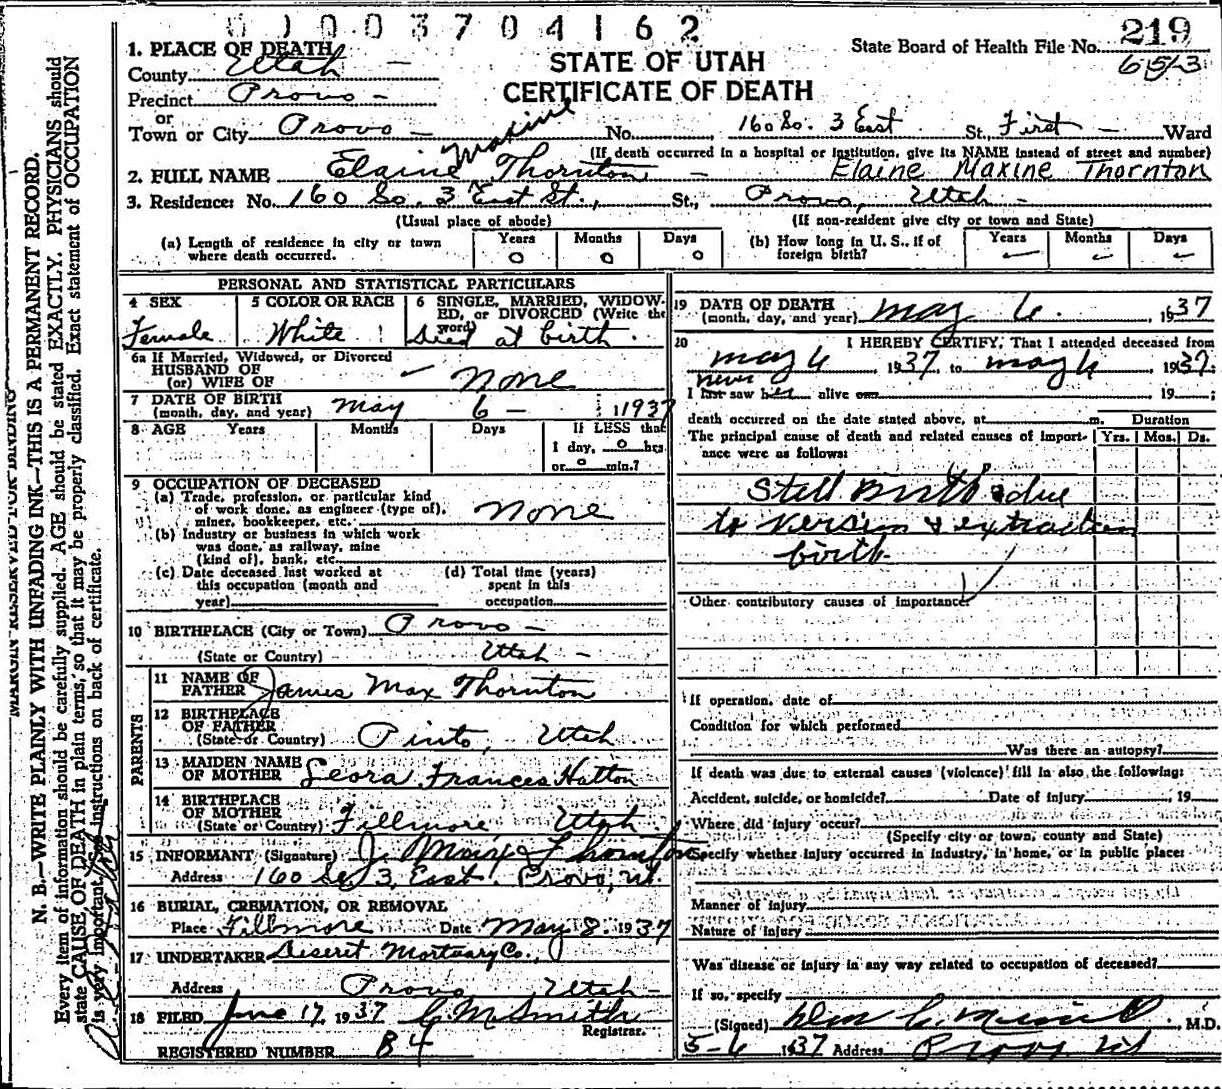 0 1 0 0 3 7 0 4 1 6 2
219
State Board of Health File No.
6513
STATE OF UTAH
CERTIFICATE OF DEATH
1. PLACE OF DEATH
County Utah
Precinct Provo
or
Town or City Provo No. 160 So. 3 East St. First Ward
(If death occurred in a hospital or institution, give its NAME instead of street and number)
2. FULL NAME Elaine Maxine Thornton Elaine Maxine Thornton
3. Residence: No. 160 So. 3 East St., St., Provo, Utah
(Usual place of abode) (If non-resident give city or town and State)
(a) Length of residence in city or town where death occurred. Years 0 Months 0 Days 0
(b) How long in U. S., if of foreign birth? Years Months Days
PERSONAL AND STATISTICAL PARTICULARS
4 SEX Female
5 COLOR OR RACE White
6 SINGLE, MARRIED, WIDOWED, or DIVORCED (Write the word) Died at birth.
6a If Married, Widowed, or Divorced
HUSBAND OF
(or) WIFE OF None
7 DATE OF BIRTH
(month, day, and year) May 6 - 1937
8 AGE Years Months Days If LESS than
1 day, 0 hrs.
or 0 min.?
9 OCCUPATION OF DECEASED
(a) Trade, profession, or particular kind
of work done, as engineer (type of),
miner, bookkeeper, etc. None
(b) Industry or business in which work
was done, as railway, mine
(kind of), bank, etc.
(c) Date deceased last worked at
this occupation (month and
year)
(d) Total time (years)
spent in this
occupation
10 BIRTHPLACE (City or Town) Provo
(State or Country) Utah
PARENTS
11 NAME OF
FATHER James Max Thornton
12 BIRTHPLACE
OF FATHER
(State or Country) Pinto, Utah
13 MAIDEN NAME
OF MOTHER Leora Frances Hatton
14 BIRTHPLACE
OF MOTHER
(State or Country) Fillmore Utah
15 INFORMANT (Signature) J. Max Thornton
Address 160 So 3 East Provo, Ut.
16 BURIAL, CREMATION, OR REMOVAL
Place Fillmore Date May 8. 1937
17 UNDERTAKER Deseret Mortuary Co.,
Address Provo Utah
18 FILED June 17, 1937 C M Smith
Registrar.
REGISTERED NUMBER 84
19 DATE OF DEATH
(month, day, and year) May 6. 1937
20 I HEREBY CERTIFY, That I attended deceased from
May 6, 1937 to May 6, 1937.
I last saw her alive on never 19 ;
death occurred on the date stated above, at m.
The principal cause of death and related causes of importance were as follows:
Duration
Yrs. Mos. Ds.
Still Birth due
to version & extraction
birth.
Other contributory causes of importance:
If operation, date of
Condition for which performed
Was there an autopsy?
If death was due to external causes (violence) fill in also the following:
Accident, suicide, or homicide? Date of injury , 19
Where did injury occur?
(Specify city or town, county and State)
Specify whether injury occurred in industry, in home, or in public place:
Manner of injury
Nature of injury
Was disease or injury in any way related to occupation of deceased?
If so, specify
(Signed) M.D.
5-6 1937 Address Provo Ut
MARGIN RESERVED FOR BINDING
N. B.—WRITE PLAINLY WITH UNFADING INK—THIS IS A PERMANENT RECORD.
Every item of information should be carefully supplied. AGE should be stated EXACTLY. PHYSICIANS should
state CAUSE OF DEATH in plain terms, so that it may be properly classified. Exact statement of OCCUPATION
is very important. See instructions on back of certificate.